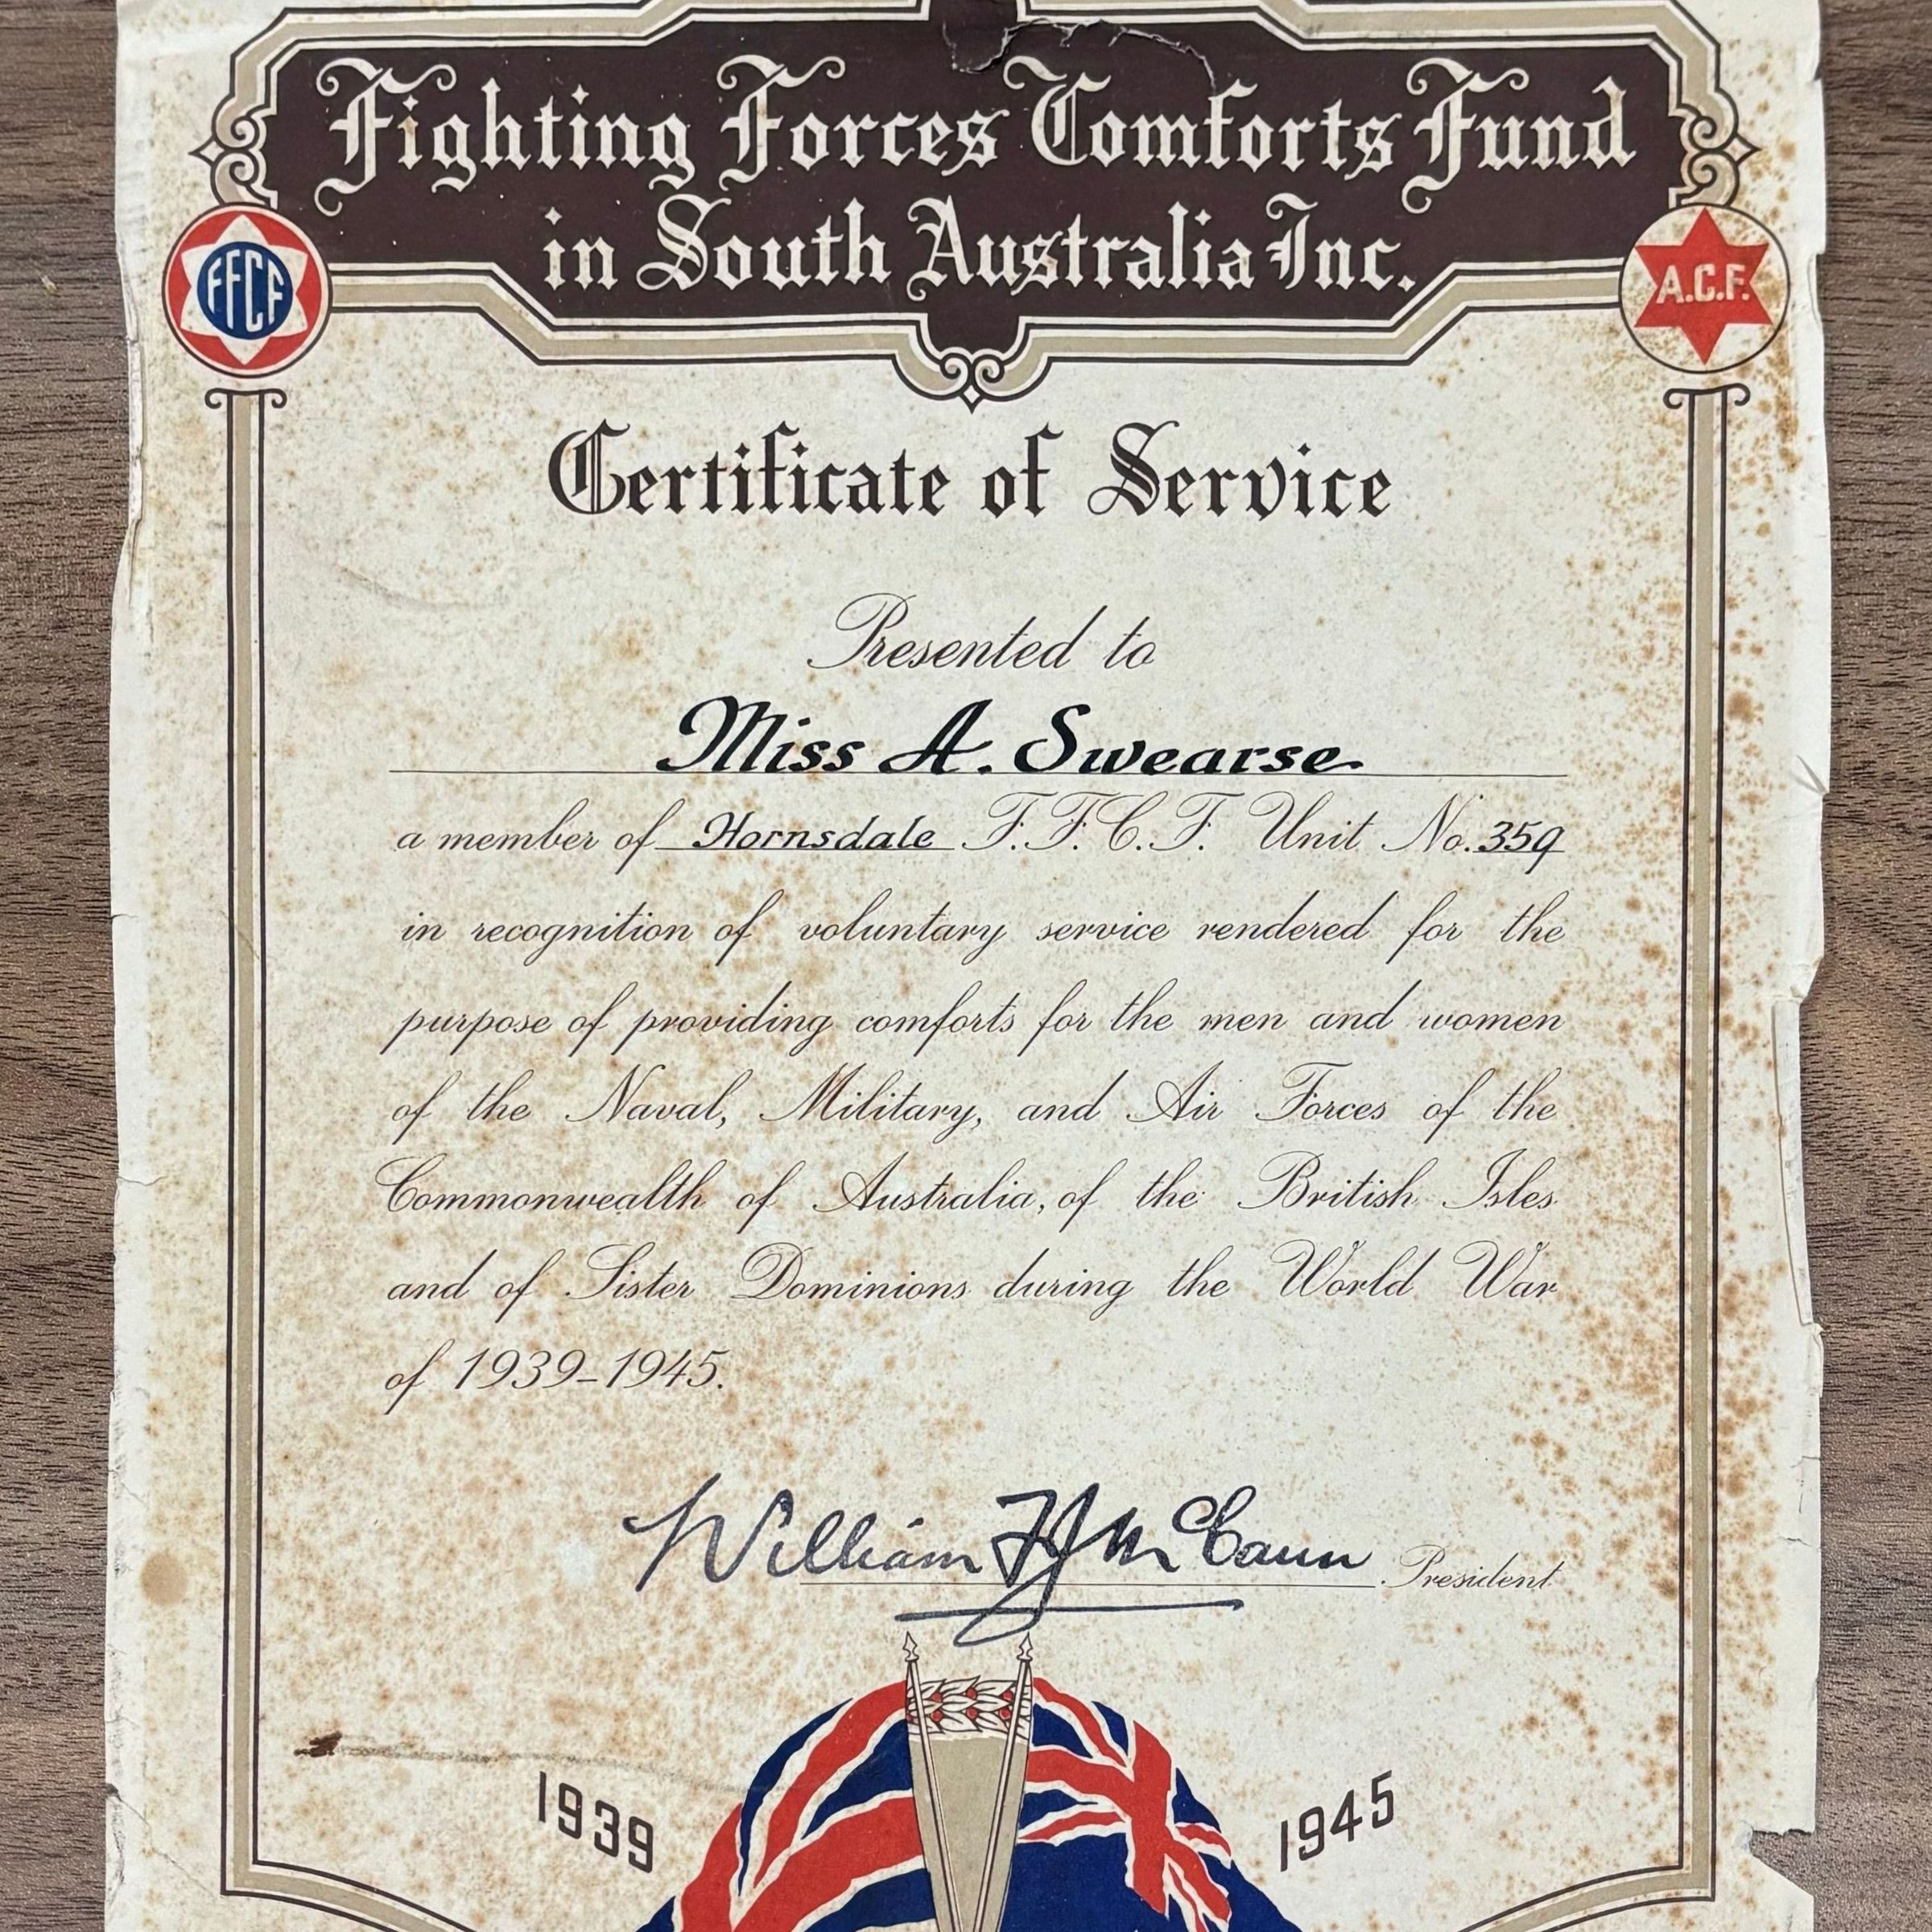 Fighting Forces Comforts Fund
in South Australia Inc.
FFCF
A.C.F.
Certificate of Service
Presented to
Miss A. Swearse
a member of Hornsdale F.F.C.F. Unit No. 359
in recognition of voluntary service rendered for the
purpose of providing comforts for the men and women
of the Naval, Military, and Air Forces of the
Commonwealth of Australia, of the British Isles
and of Sister Dominions during the World War
of 1939-1945.
William F J McCann President
1939
1945